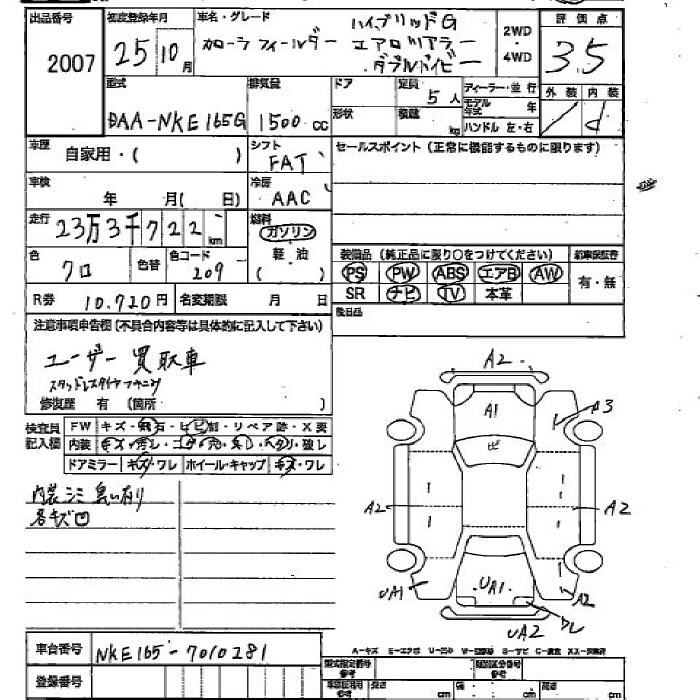 出品番号 初度登録年月 車名・グレード ハイブリッドG 2WD ・ 4WD 評価点
2007 25 10月 カローラ フィールダー エアロツアラー 3.5
ダブルバイビー
型式 排気量 ドア 定員 5人 ディーラー・並行 外装 内装
DAA-NKE165G 1500cc 形状 積載 kg モデル年式 年 d
ハンドル 左・右
車歴 自家用・( ) シフト FAT セールスポイント(正常に機能するものに限ります)
車検 年 月( 日) 冷房 AAC
走行 23万3千722km 燃料 ガソリン
軽油
( )
色 クロ 色替 色コード 209 装備品(純正品に限り○をつけてください) 新車保証書
PS PW ABS エアB AW 有・無
R券 10.720円 名変期限 月 日 SR ナビ TV 本革
後日品
注意事項申告欄(不具合内容等は具体的に記入して下さい)
ユーザー買取車
スタッドレスタイヤ
修復歴 有 (箇所 )
検査員記入欄 FW キズ・飛石・ヒビ割・リペア跡・X要
内装 キズ・汚レ・コゲ・穴・
ドアミラー キズ・ワレ ホイール・キャップ キズ・ワレ
内装シミ 臭い有り
各キズ凹
A2
A1
A3
ヒ
A2
A2
UA1
UA1
A2
UA2
車台番号 NKE165-7010281
登録番号
型式指定番号 類別区分番号
参考 長さ cm 幅 cm 高さ cm